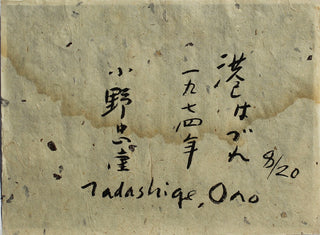 港はづれ
一九七四年
小野忠重
8/20
Tadashige, Ono